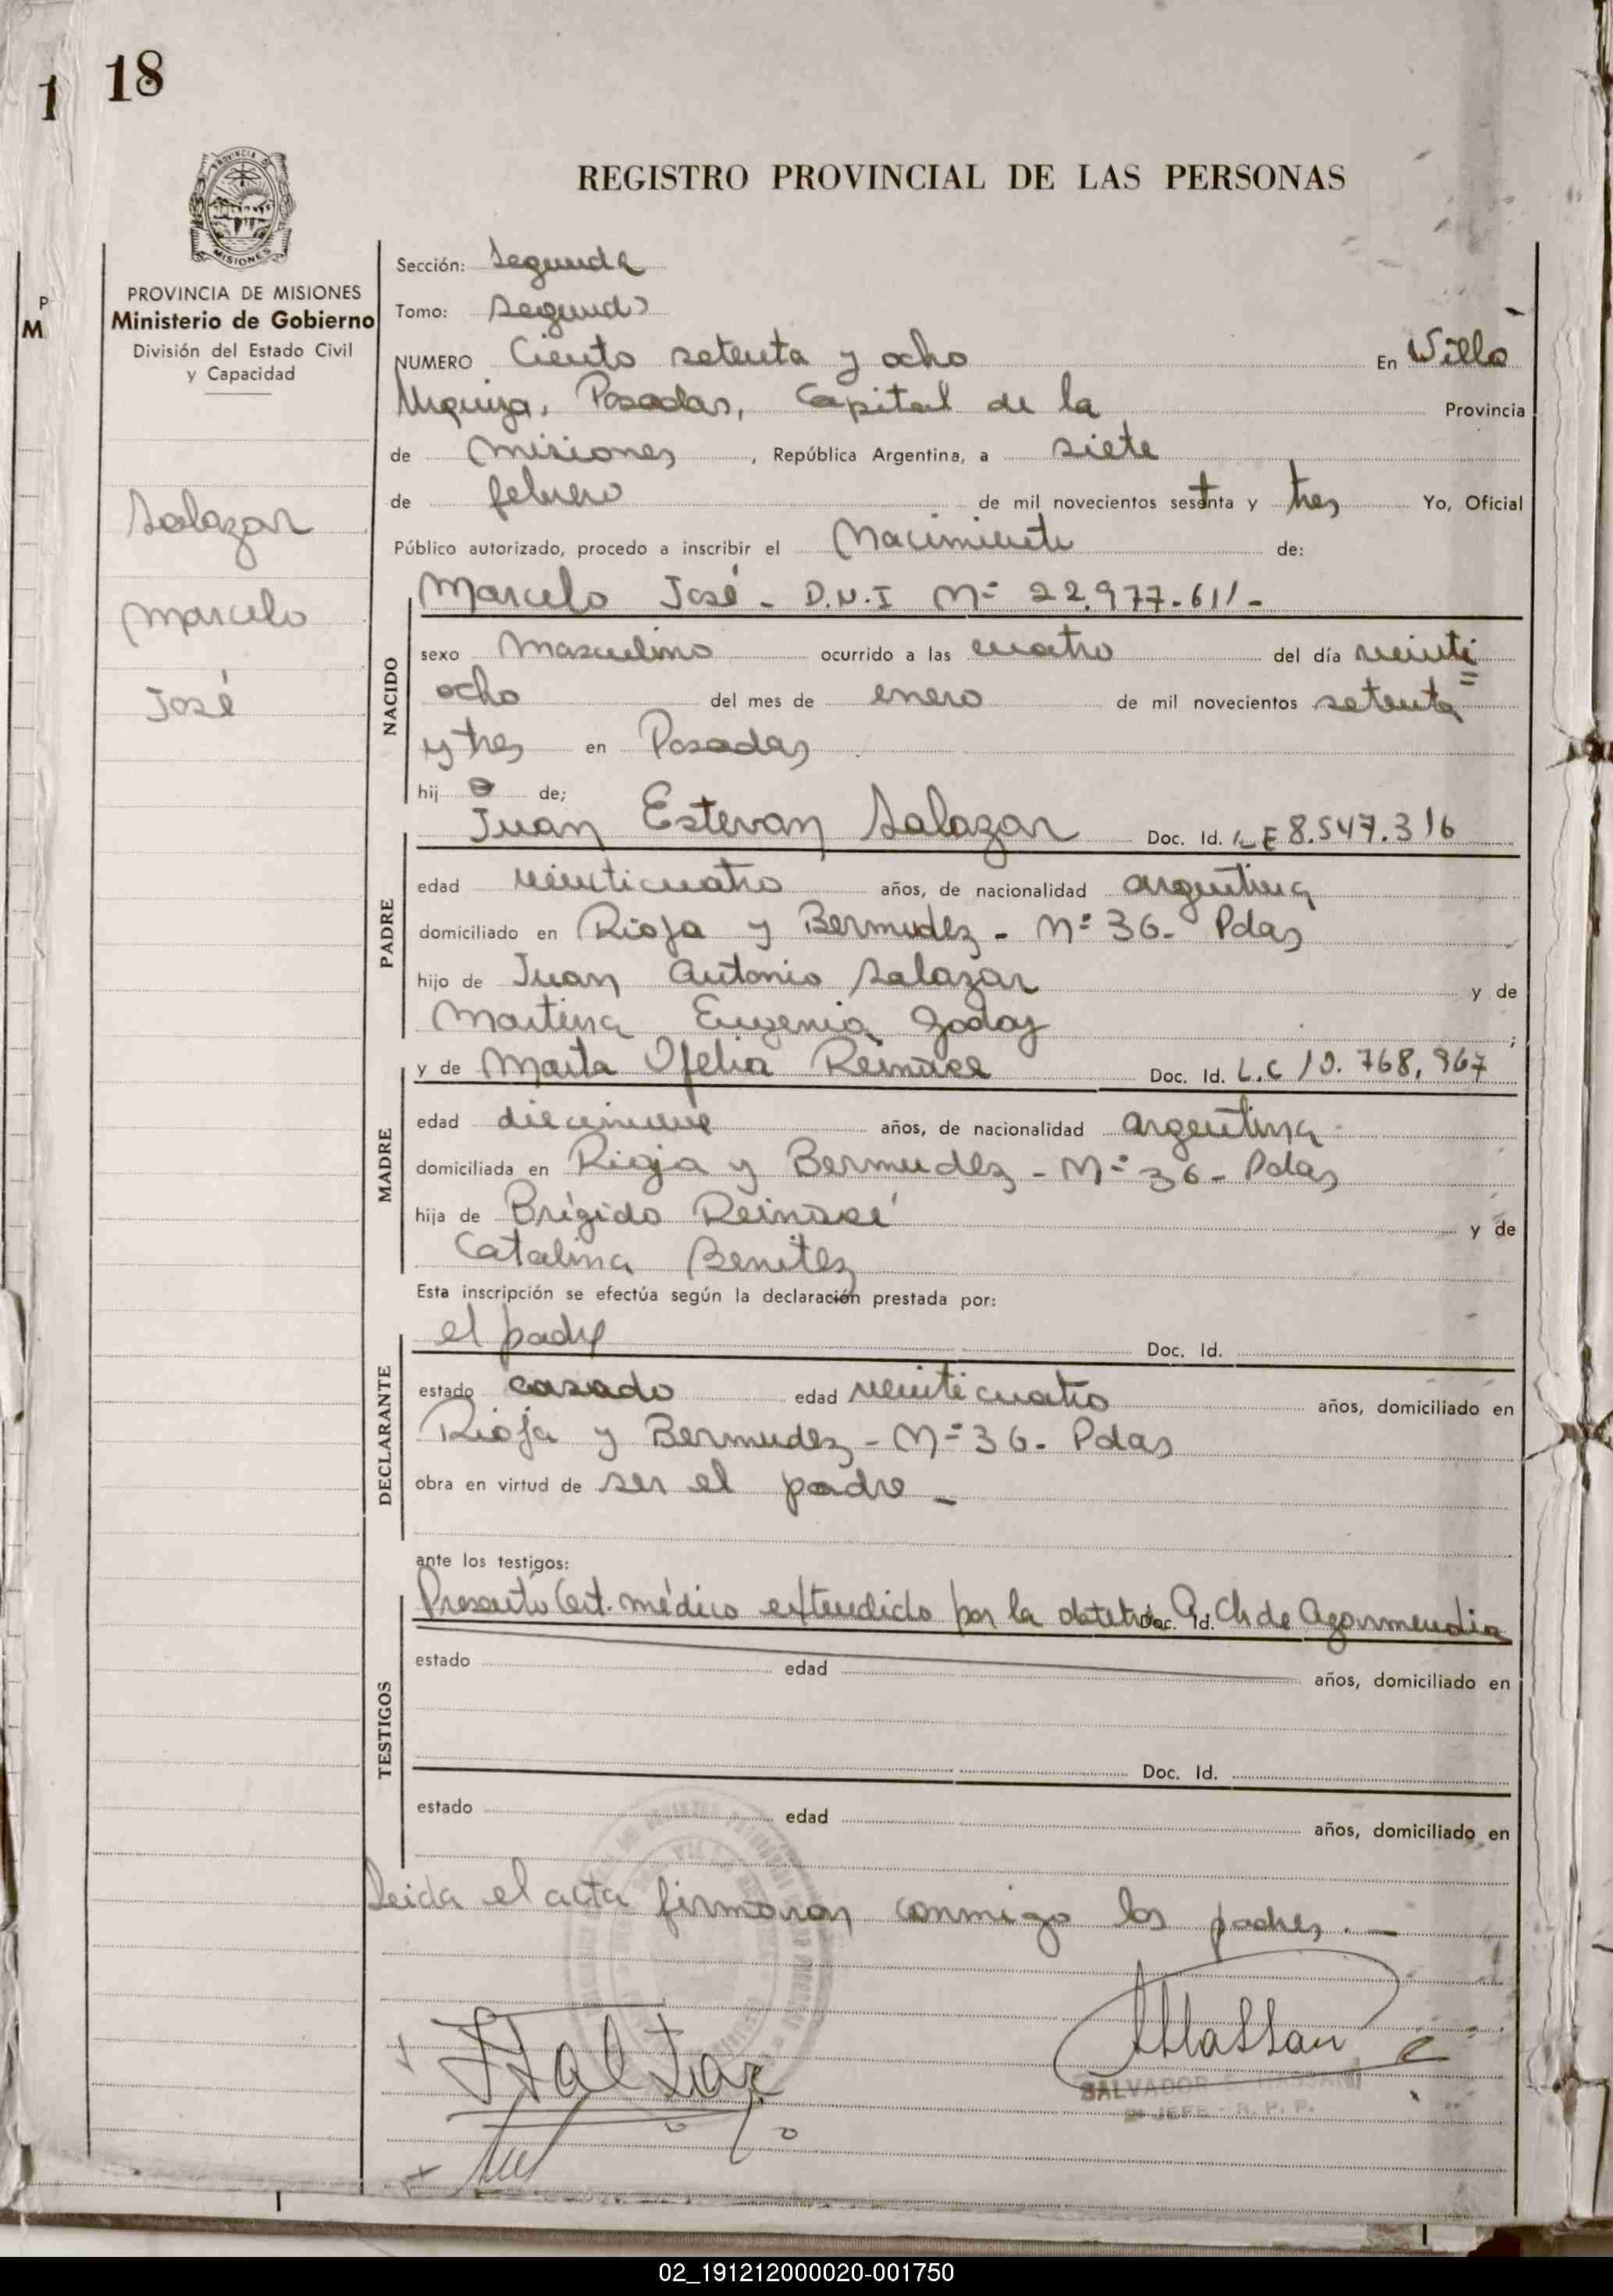 1 18
REGISTRO PROVINCIAL DE LAS PERSONAS
PROVINCIA DE
MISIONES
PROVINCIA DE MISIONES
Ministerio de Gobierno
División del Estado Civil
y Capacidad
P
M
Salazar
Marcelo
José
Sección: Segunda
Tomo: Segundo
NUMERO Ciento setenta y ocho En Villa
Urquiza, Posadas, Capital de la Provincia
de Misiones, República Argentina, a siete
de febrero de mil novecientos setenta y tres Yo, Oficial
Público autorizado, procedo a inscribir el Nacimiento de:
NACIDO
Marcelo José - D.N.I Nº 22.977.611-
sexo Masculino ocurrido a las cuatro del día veinti=
ocho del mes de enero de mil novecientos setenta
y tres en Posadas
hijo de;
PADRE
Juan Estevan Salazar Doc. Id. L E 8.547.316
edad veinticuatro años, de nacionalidad argentina
domiciliado en Rioja y Bermudez - Nº 36 - Pdas
hijo de Juan Antonio Salazar y de
Martina Eugenia Godoy ;
MADRE
y de Marta Ofelia Doc. Id. L.C 10.768,967
edad diecinueve años, de nacionalidad argentina
domiciliada en Rioja y Bermudez - Nº 36 - Pdas
hija de Brígido y de
Catalina Benitez
Esta inscripción se efectúa según la declaración prestada por:
DECLARANTE
el padre Doc. Id.
estado casado edad veinticuatro años, domiciliado en
Rioja y Bermudez - Nº 36 - Pdas
obra en virtud de ser el padre -
ante los testigos:
TESTIGOS
Presentó Cert. médico extendido por la Doc. Id. Ch de Agormendia
estado edad años, domiciliado en
Doc. Id.
estado edad años, domiciliado en
Leida el acta firmaran conmigo los padres. -
SALVADOR
JEFE - R. P. P.
02_191212000020-001750